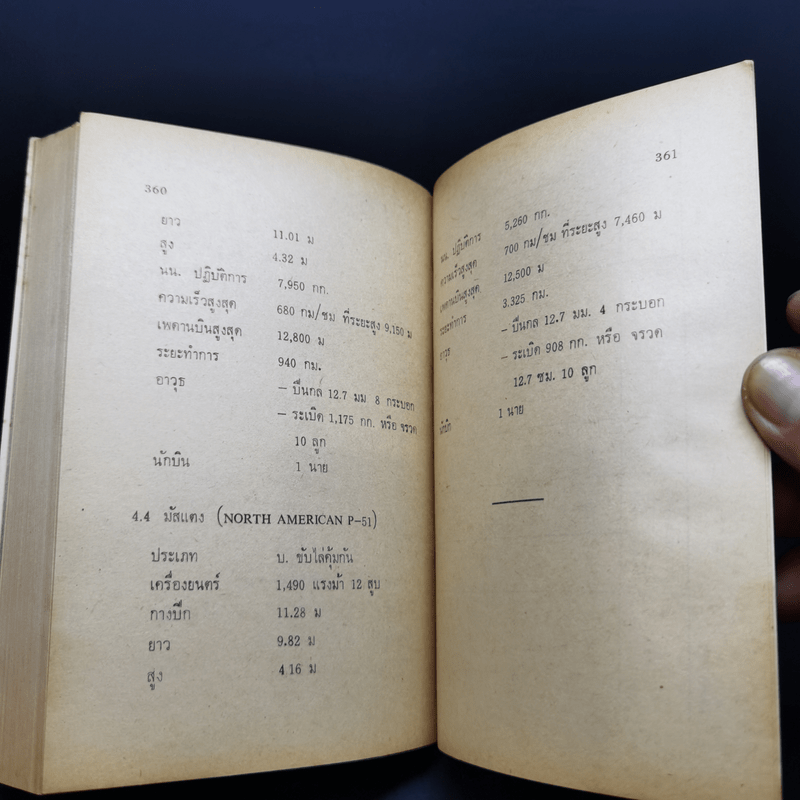 360
ยาว 11.01 ม
สูง 4.32 ม
นน. ปฏิบัติการ 7,950 กก.
ความเร็วสูงสุด 680 กม/ชม ที่ระยะสูง 9,150 ม
เพดานบินสูงสุด 12,800 ม
ระยะทำการ 940 กม.
อาวุธ – ปืนกล 12.7 มม 8 กระบอก
– ระเบิด 1,175 กก. หรือ จรวด
10 ลูก
นักบิน 1 นาย
4.4 มัสแตง (NORTH AMERICAN P-51)
ประเภท บ. ขับไล่คุ้มกัน
เครื่องยนตร์ 1,490 แรงม้า 12 สูบ
กางปีก 11.28 ม
ยาว 9.82 ม
สูง 4.16 ม
361
นน. ปฏิบัติการ 5,260 กก.
ความเร็วสูงสุด 700 กม/ชม ที่ระยะสูง 7,460 ม
เพดานบินสูงสุด 12,500 ม
ระยะทำการ 3.325 กม.
อาวุธ – ปืนกล 12.7 มม. 4 กระบอก
– ระเบิด 908 กก. หรือ จรวด
12.7 ซม. 10 ลูก
นักบิก 1 นาย